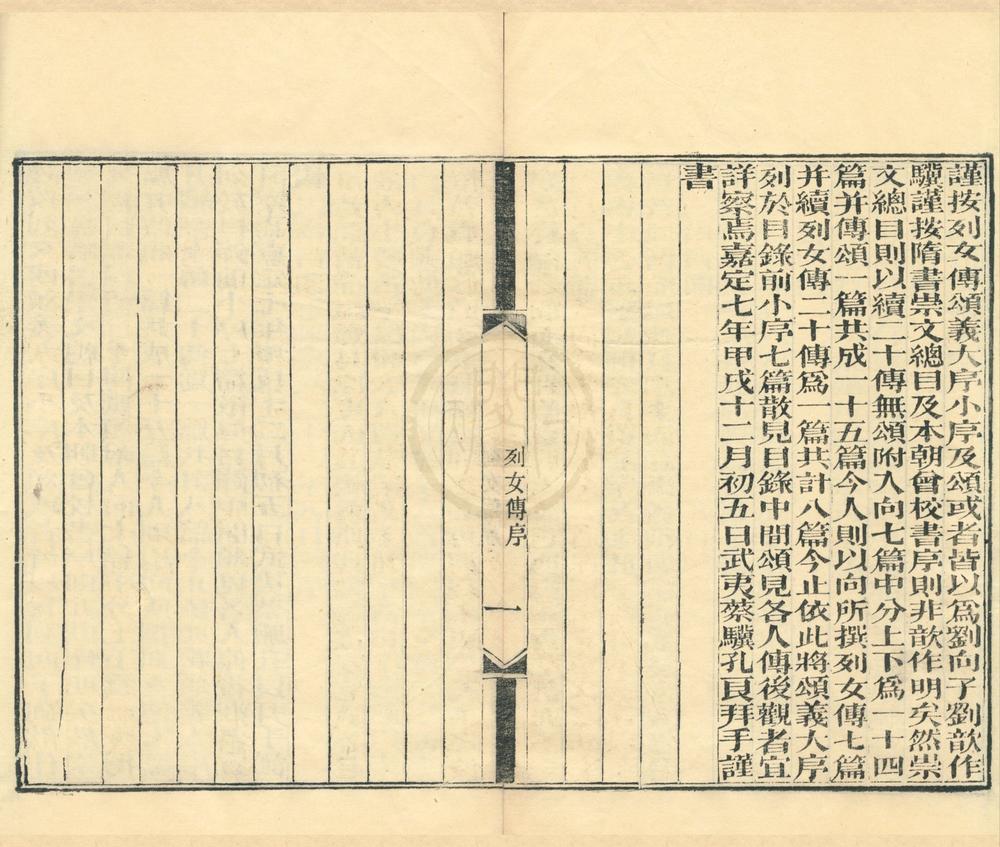 謹按列女傳頌義大序小序及頌或者皆以爲劉向子劉歆作
驥謹按隋書崇文總目及本朝曾校書序則非歆作明矣然崇
文總目則以續二十傳無頌附入向七篇中分上下爲一十四
篇并傳頌一篇共成一十五篇今人則以向所撰列女傳七篇
并續列女傳二十傳爲一篇共計八篇今止依此將頌義大序
列於目錄前小序七篇散見目錄中間頌見各人傳後觀者宜
詳察焉嘉定七年甲戌十二月初五日武夷蔡驥孔良拜手謹
書
列女傳序
一